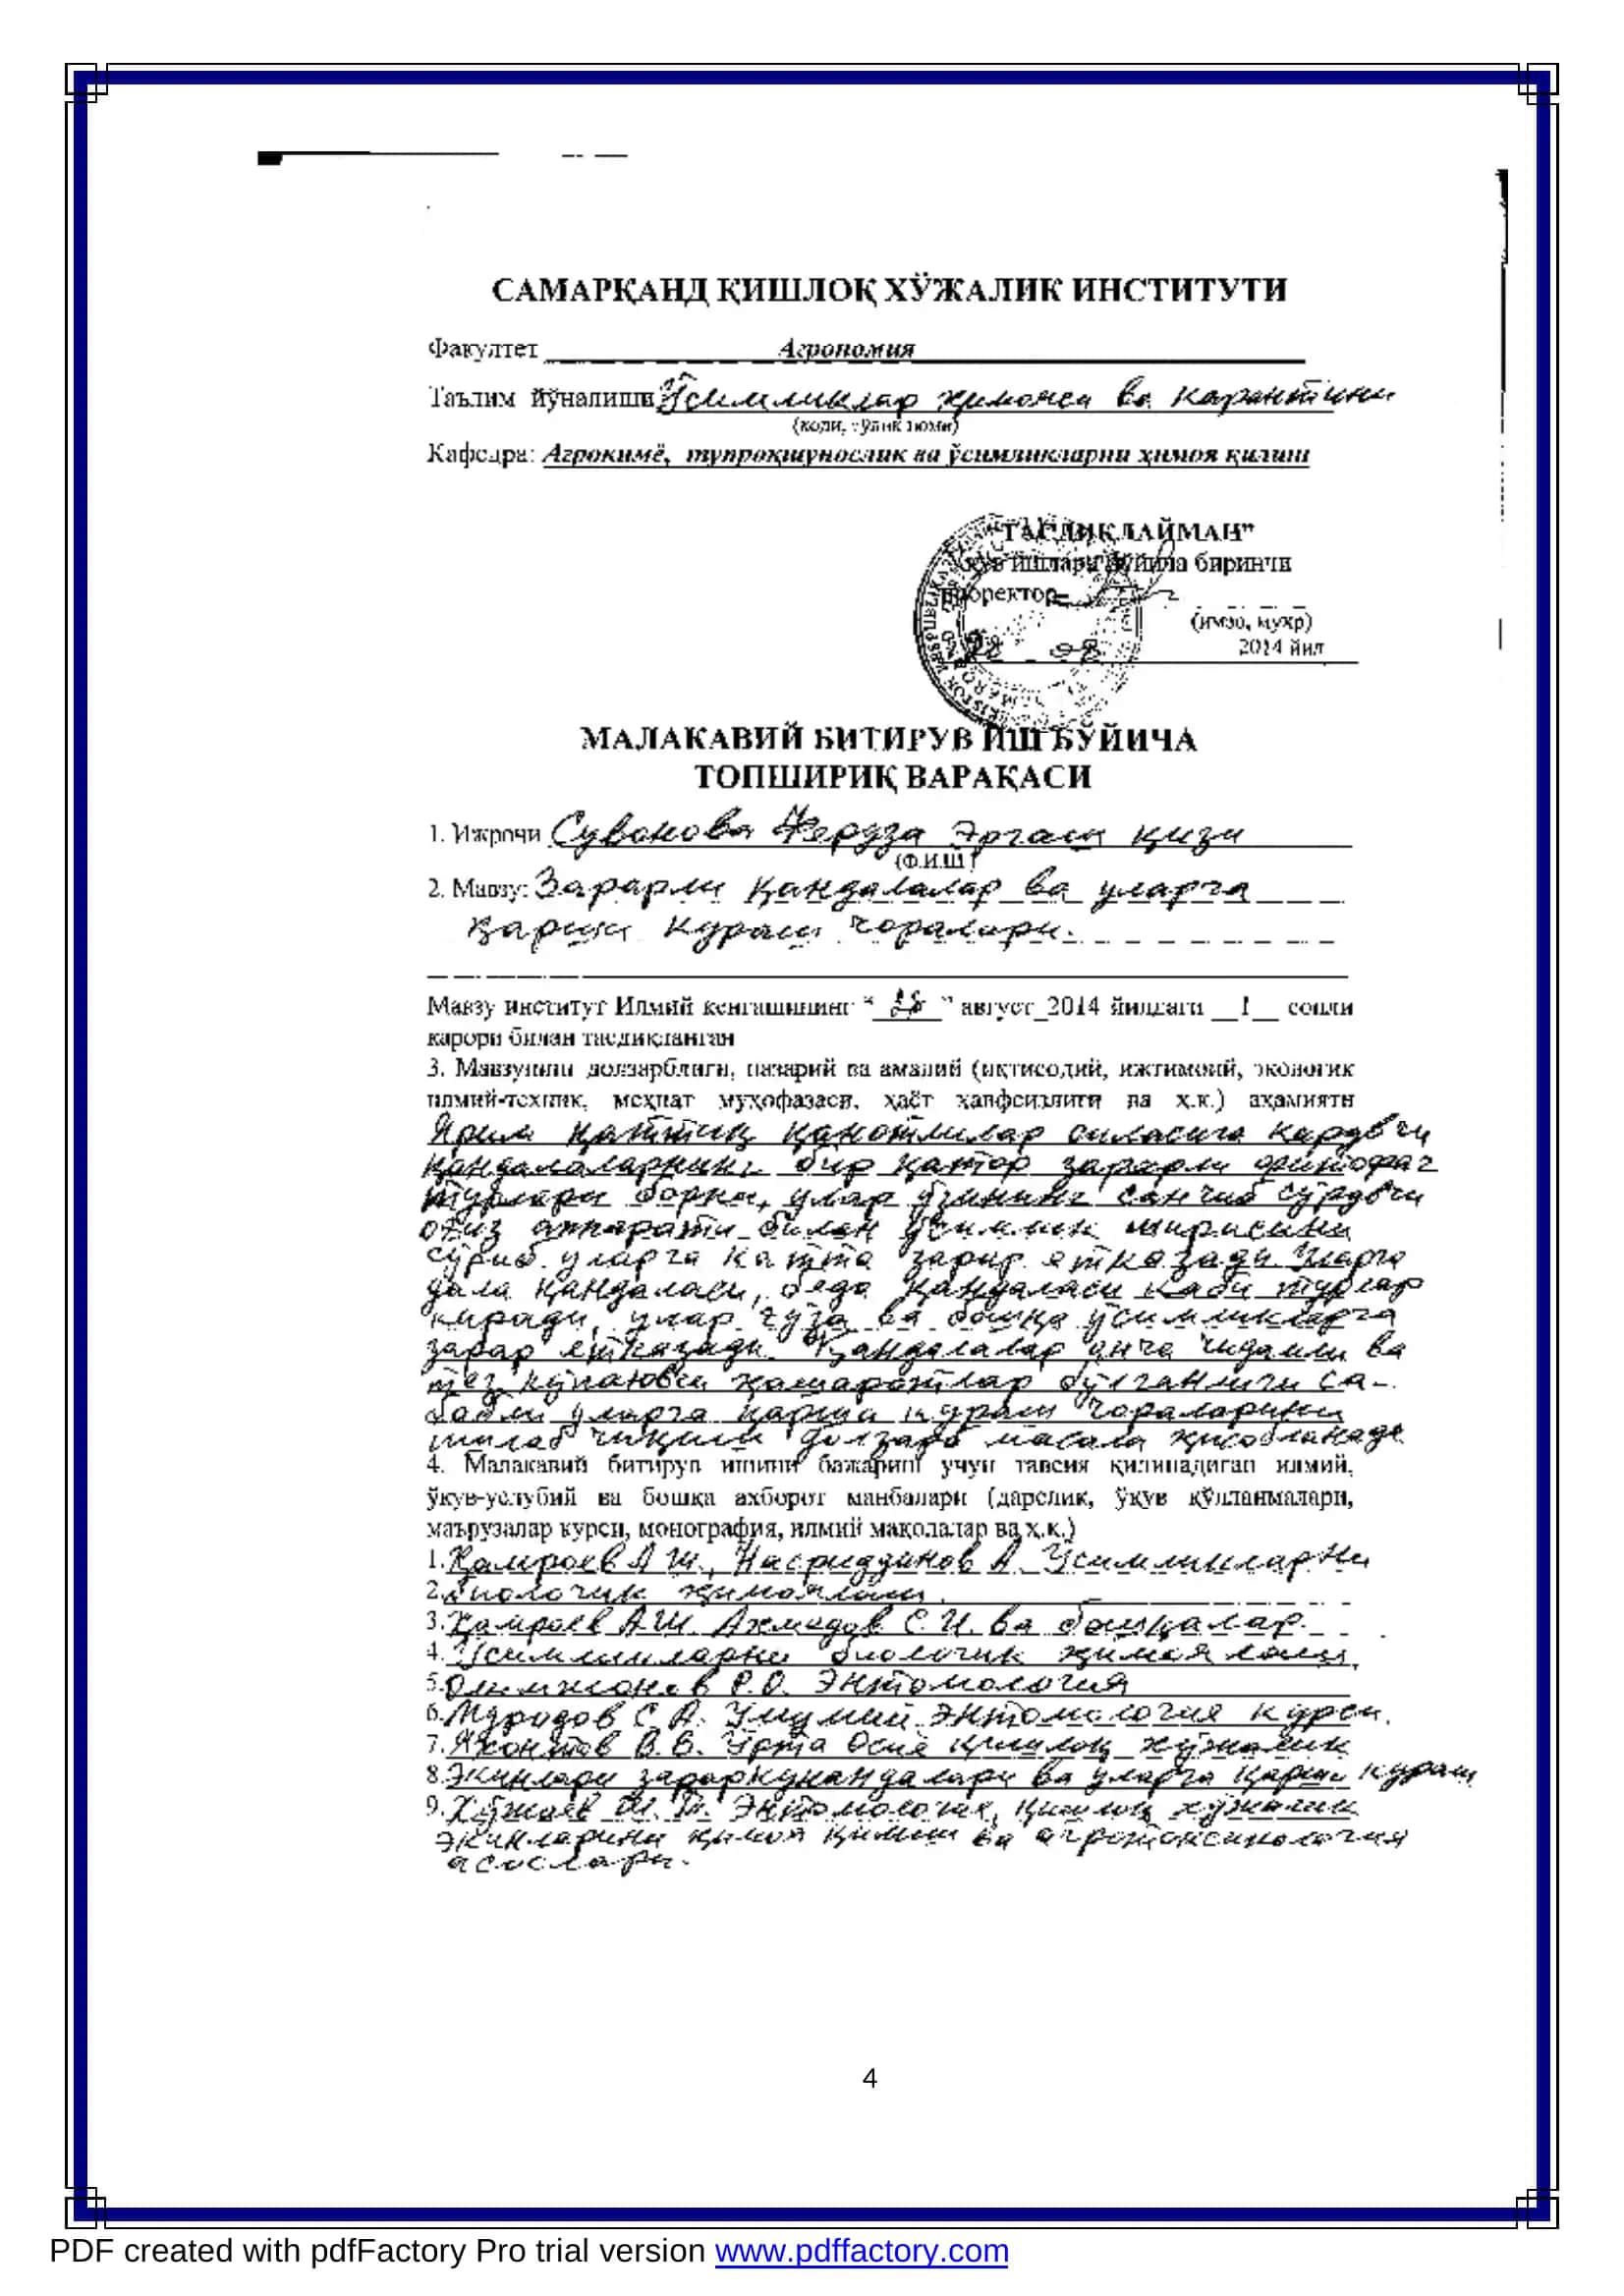 САМАРҚАНД ҚИШЛОҚ ХЎЖАЛИК ИНСТИТУТИ
Факултет Агрономия
Таълим йўналиши Ўсимликлар ҳимояси ва карантини
(коди, тўлиқ номи)
Кафедра: Агрокимё, тупроқшунослик ва ўсимликларни ҳимоя қилиш
"ТАСДИҚЛАЙМАН"
Ўқув ишлари бўйича биринчи
проректор
(имзо, муҳр)
2014 йил
МАЛАКАВИЙ БИТИРУВ ИШ БЎЙИЧА
ТОПШИРИҚ ВАРАҚАСИ
1. Ижрочи Сувонова Феруза Эргаш қизи
(Ф.И.Ш)
2. Мавзу: Зарарли қандалалар ва уларга
қарши кураш чоралари.
Мавзу институт Илмий кенгашининг "28" август 2014 йилдаги 1 сонли
қарори билан тасдиқланган
3. Мавзунинг долзарблиги, назарий ва амалий (иқтисодий, ижтимоий, экологик
илмий-техник, меҳнат муҳофазаси, ҳаёт ҳавфсизлиги ва ҳ.к.) аҳамияти
Ярим қаттиқ қанотлилар оиласига кардвчи
қандалаларнинг бир қатор зарарли фитофаг
турлари борки, улар ўзининг санчиб сўрдвчи
оғиз аппарати билан ўсимлик ширасини
сўриб уларга катта зарар етказади Уларга
дала қандаласи, беда қандаласи каби турлар
киради, улар ғўза ва бошқа ўсимликларга
зарар етказади. Қандалалар анча чидамли ва
тез кўпаювчи ҳашаротлар бўлганлиги са-
бабли уларга қарши кураш чораларини
ишлаб чиқиш долзарб масала ҳисобланади
4. Малакавий битирув ишини бажариш учун тавсия қилинадиган илмий,
ўқув-услубий ва бошқа ахборот манбалари (дарслик, ўқув қўлланмалари,
маърузалар курси, монография, илмий мақолалар ва ҳ.к.)
1. Ҳамроев А Ш., Насриддинов А. Ўсимликларни
2. биологик ҳимоялаш.
3. Ҳамроев А.Ш. Ахмедов С.И. ва бошқалар.
4. Ўсимликларни биологик ҳимоялаш.
5. Олимжонов Р.О. Энтомология
6. Муродов С.А. Умумий энтомология курси.
7. Яхонтов В.В. Ўрта Осиё қишлоқ хўжалик
8. Экинлари зараркунандалари ва уларга қарши кураш
9. Хўжаев Ш.Т. Энтомология, қишлоқ хўжалик
экинларини ҳимоя қилиш ва агротоксикология
асослари.
4
PDF created with pdfFactory Pro trial version www.pdffactory.com